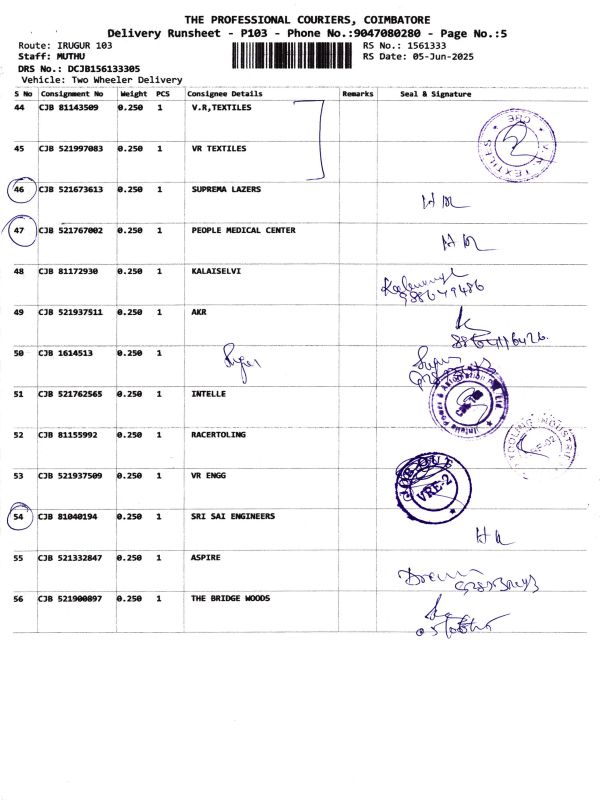 THE PROFESSIONAL COURIERS, COIMBATORE
Delivery Runsheet - P103 - Phone No.:9047080280 - Page No.:5
Route: IRUGUR 103 RS No.: 1561333
Staff: MUTHU RS Date: 05-Jun-2025
DRS No.: DCJB156133305
Vehicle: Two Wheeler Delivery
S No Consignment No Weight PCS Consignee Details Remarks Seal & Signature
44 CJB 81143509 0.250 1 V.R,TEXTILES
45 CJB 521997083 0.250 1 VR TEXTILES
V.R. TEXTILES CBE
46 CJB 521673613 0.250 1 SUPREMA LAZERS
47 CJB 521767002 0.250 1 PEOPLE MEDICAL CENTER
48 CJB 81172930 0.250 1 KALAISELVI
49 CJB 521937511 0.250 1 AKR
50 CJB 1614513 0.250 1
51 CJB 521762565 0.250 1 INTELLE
52 CJB 81155992 0.250 1 RACERTOLING
53 CJB 521937509 0.250 1 VR ENGG
VRE-2
54 CJB 81040194 0.250 1 SRI SAI ENGINEERS
55 CJB 521332847 0.250 1 ASPIRE
56 CJB 521900897 0.250 1 THE BRIDGE WOODS